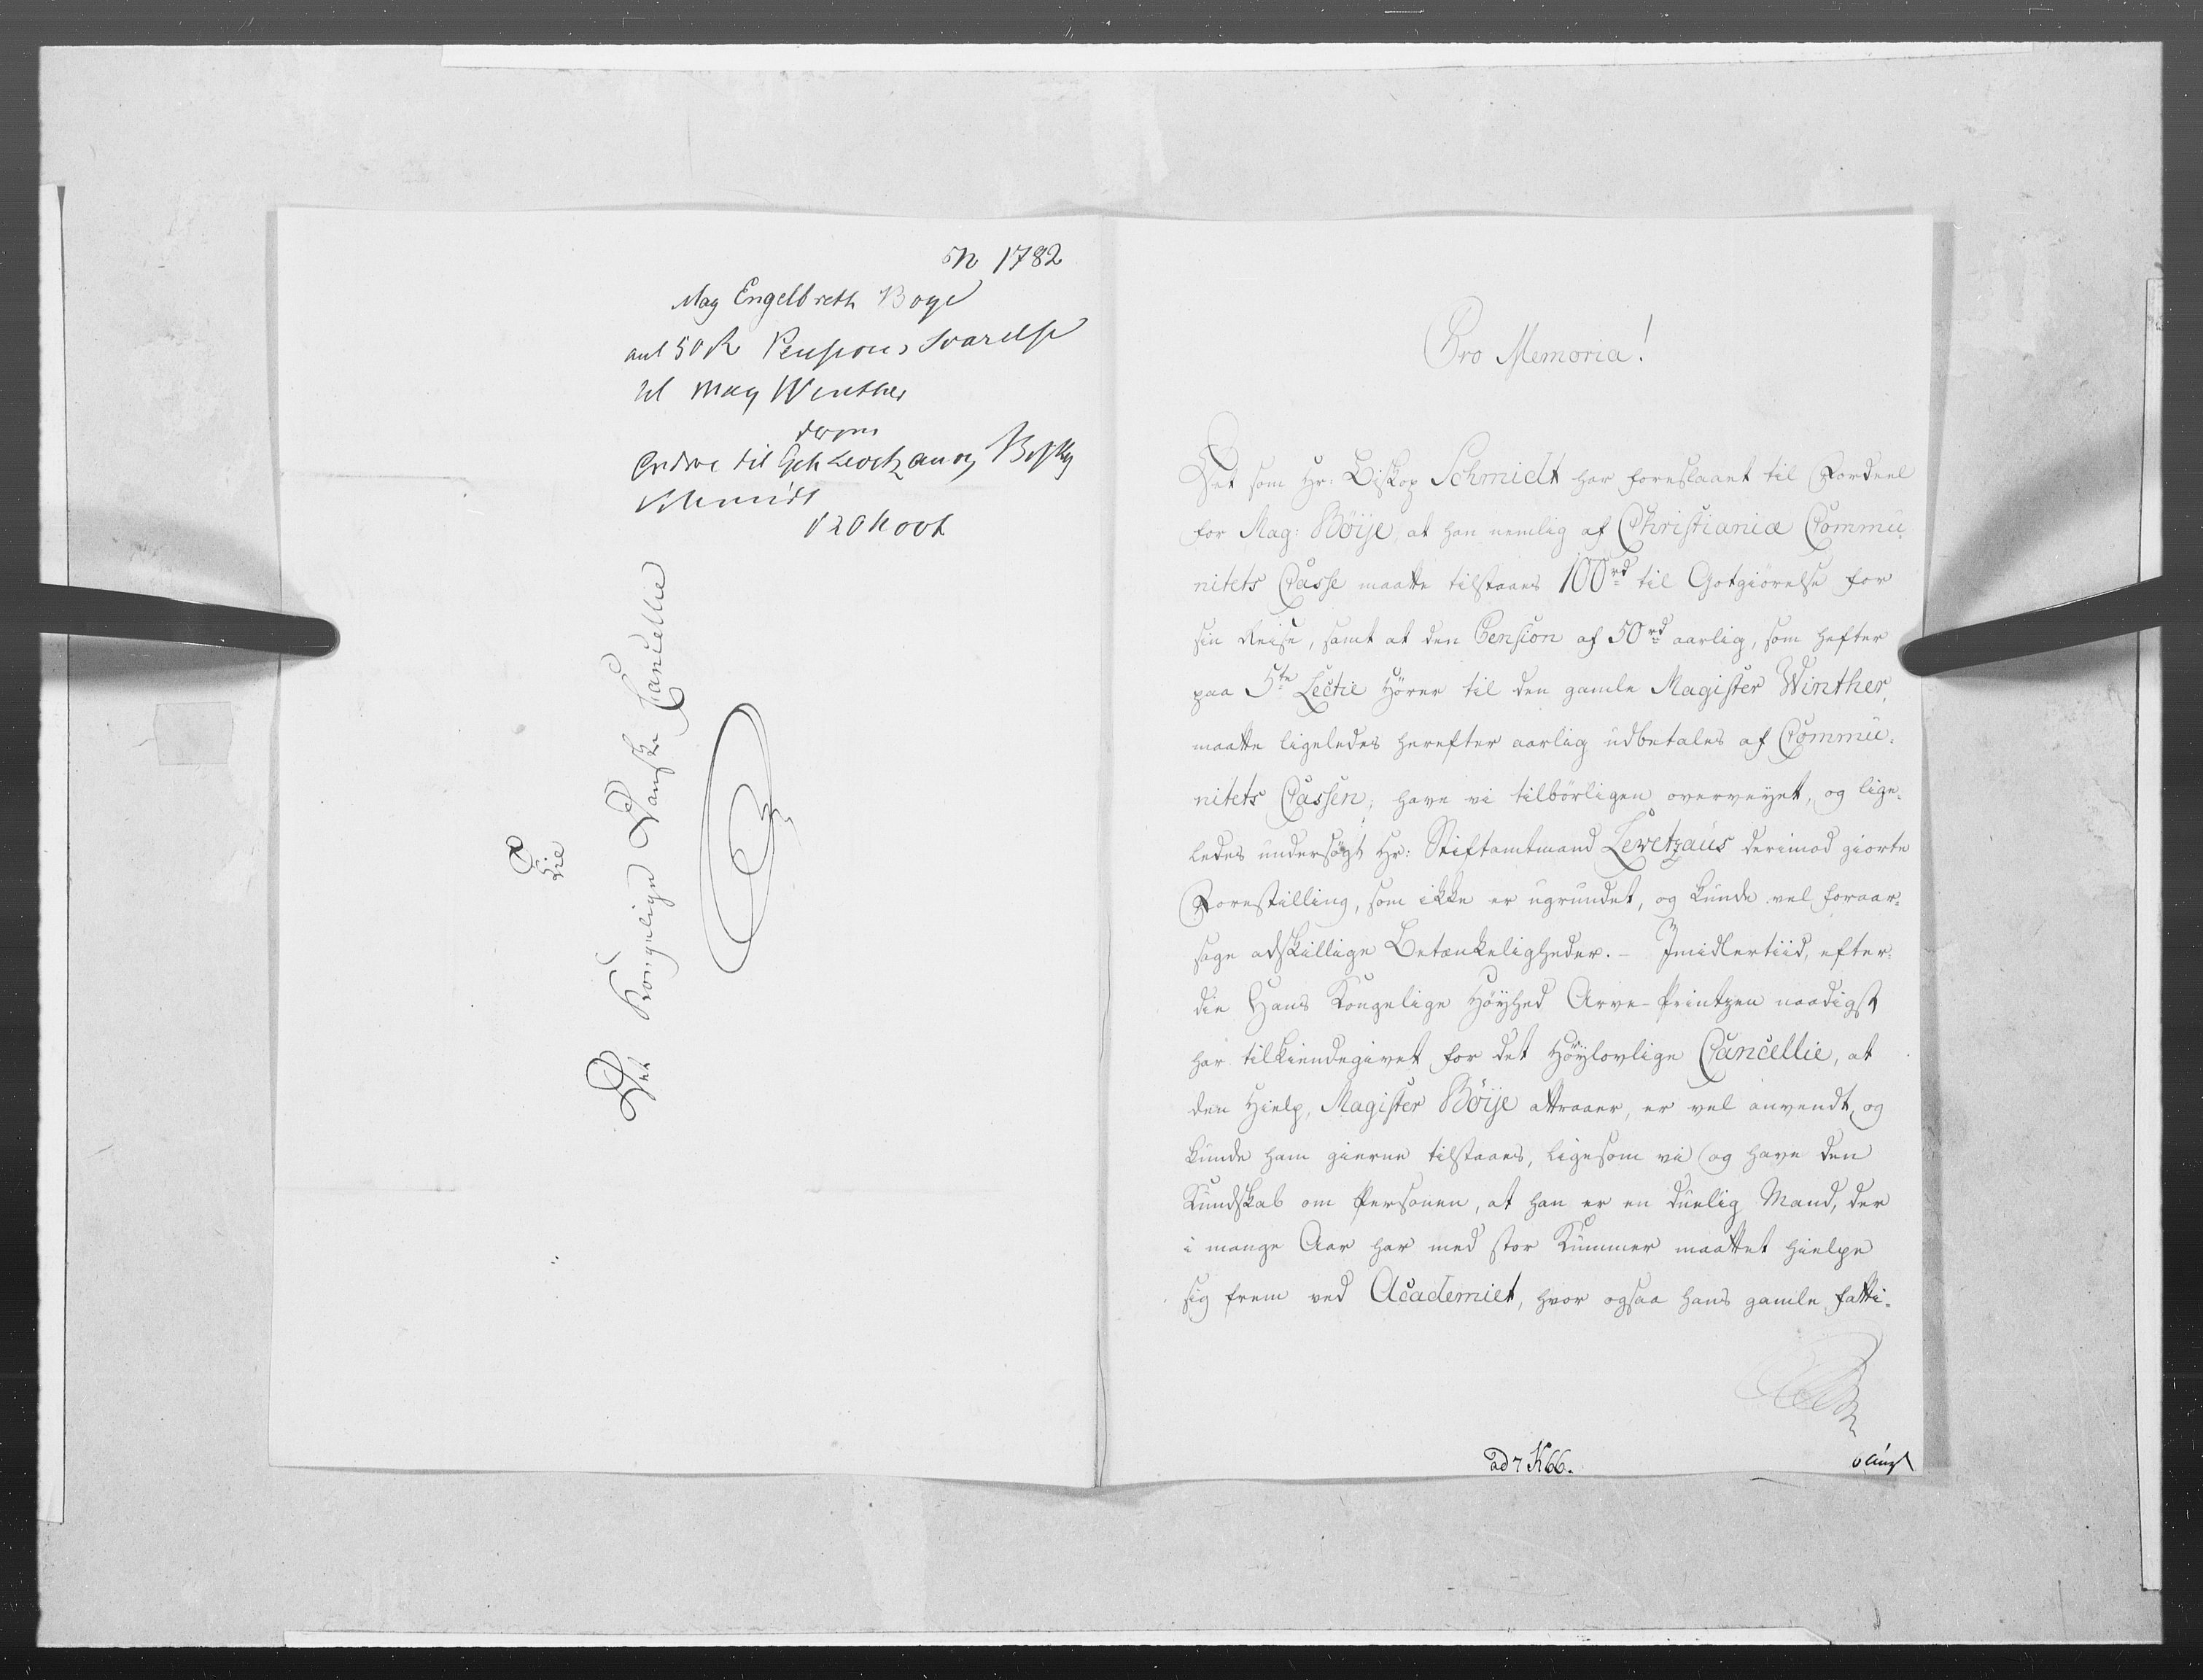 N 1782
Mag Engelbreth Boye
ant 50 R Pensions Svarelse
til Mag Winther
Ordre til Geh Levetzau og Biskop
Schmidt
d 20 Novb
Til
Det Kongelige Danske Cancellie
Pro Memoria!
Det som Hr: Biskop Schmidt har foreslaaet til Fordeel
for Mag: Böije, at han nemlig af Christianiæ Commu-
nitets Casse maatte tilstaaes 100 rd til Godtgiörelse for
sin Reise, samt at den Pension af 50 rd aarlig, som hefter
paa 5te Lectie Hörer til den gamle Magister Winther,
maatte ligeledes herefter aarlig udbetales af Commu-
nitets Cassen; have vi tilbörligen overveyet, og lige-
ledes undersögt Hr: Stiftamtmand Levetzaus derimod giorte
Forestilling, som ikke er ugrundet, og kunde vel foraar-
sage adskillige Betænkeligheder. - Imidlertiid, efter-
die Hans Kongelige Höyhed Arve-Printzen naadigst
har tilkiendegivet for det Höylovlige Cancellie, at
den Hielp, Magister Böije attraaer, er vel anvendt, og
kunde ham gierne tilstaaes, ligesom vi og have den
Kundskab om Personen, at han er en duelig Mand, der
i mange Aar har med stor Kummer maattet hielpe
sig frem ved Academiet, hvor ogsaa hans gamle fatti-
ad 7 K66.